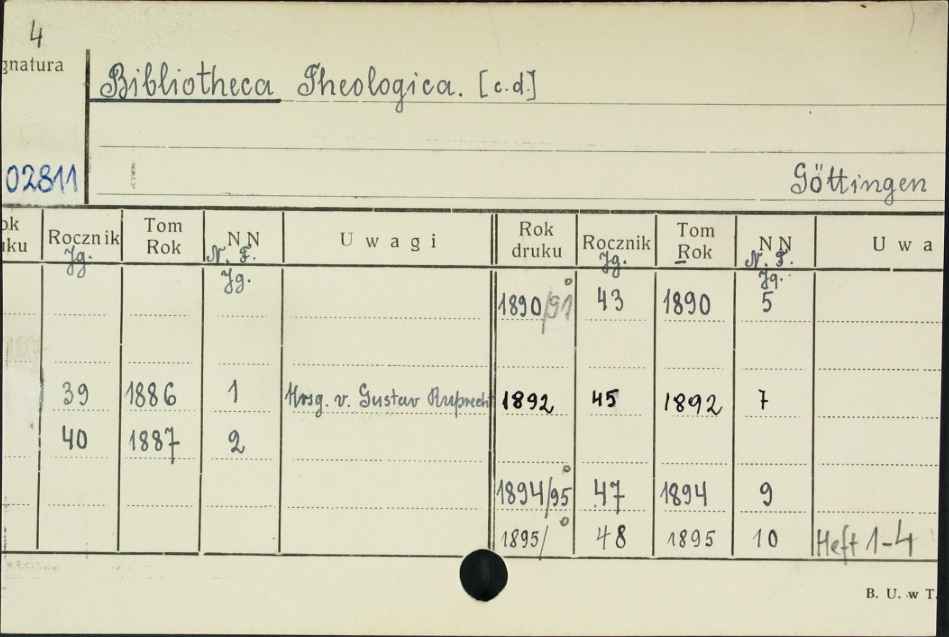 4
gnatura
Bibliotheca Theologica. [c.d.]
02811
Göttingen
ok uku Rocznik Jg. Tom Rok NN N. F. Jg. Uwagi Rok druku Rocznik Jg. Tom Rok NN N. F. Jg. Uwa
1890/91 43 1890 5
39 1886 1 Hrsg. v. Gustav Ruprecht 1892 45 1892 7
40 1887 2
1894/95 47 1894 9
1895/ 48 1895 10 Heft 1-4
B. U. w T.